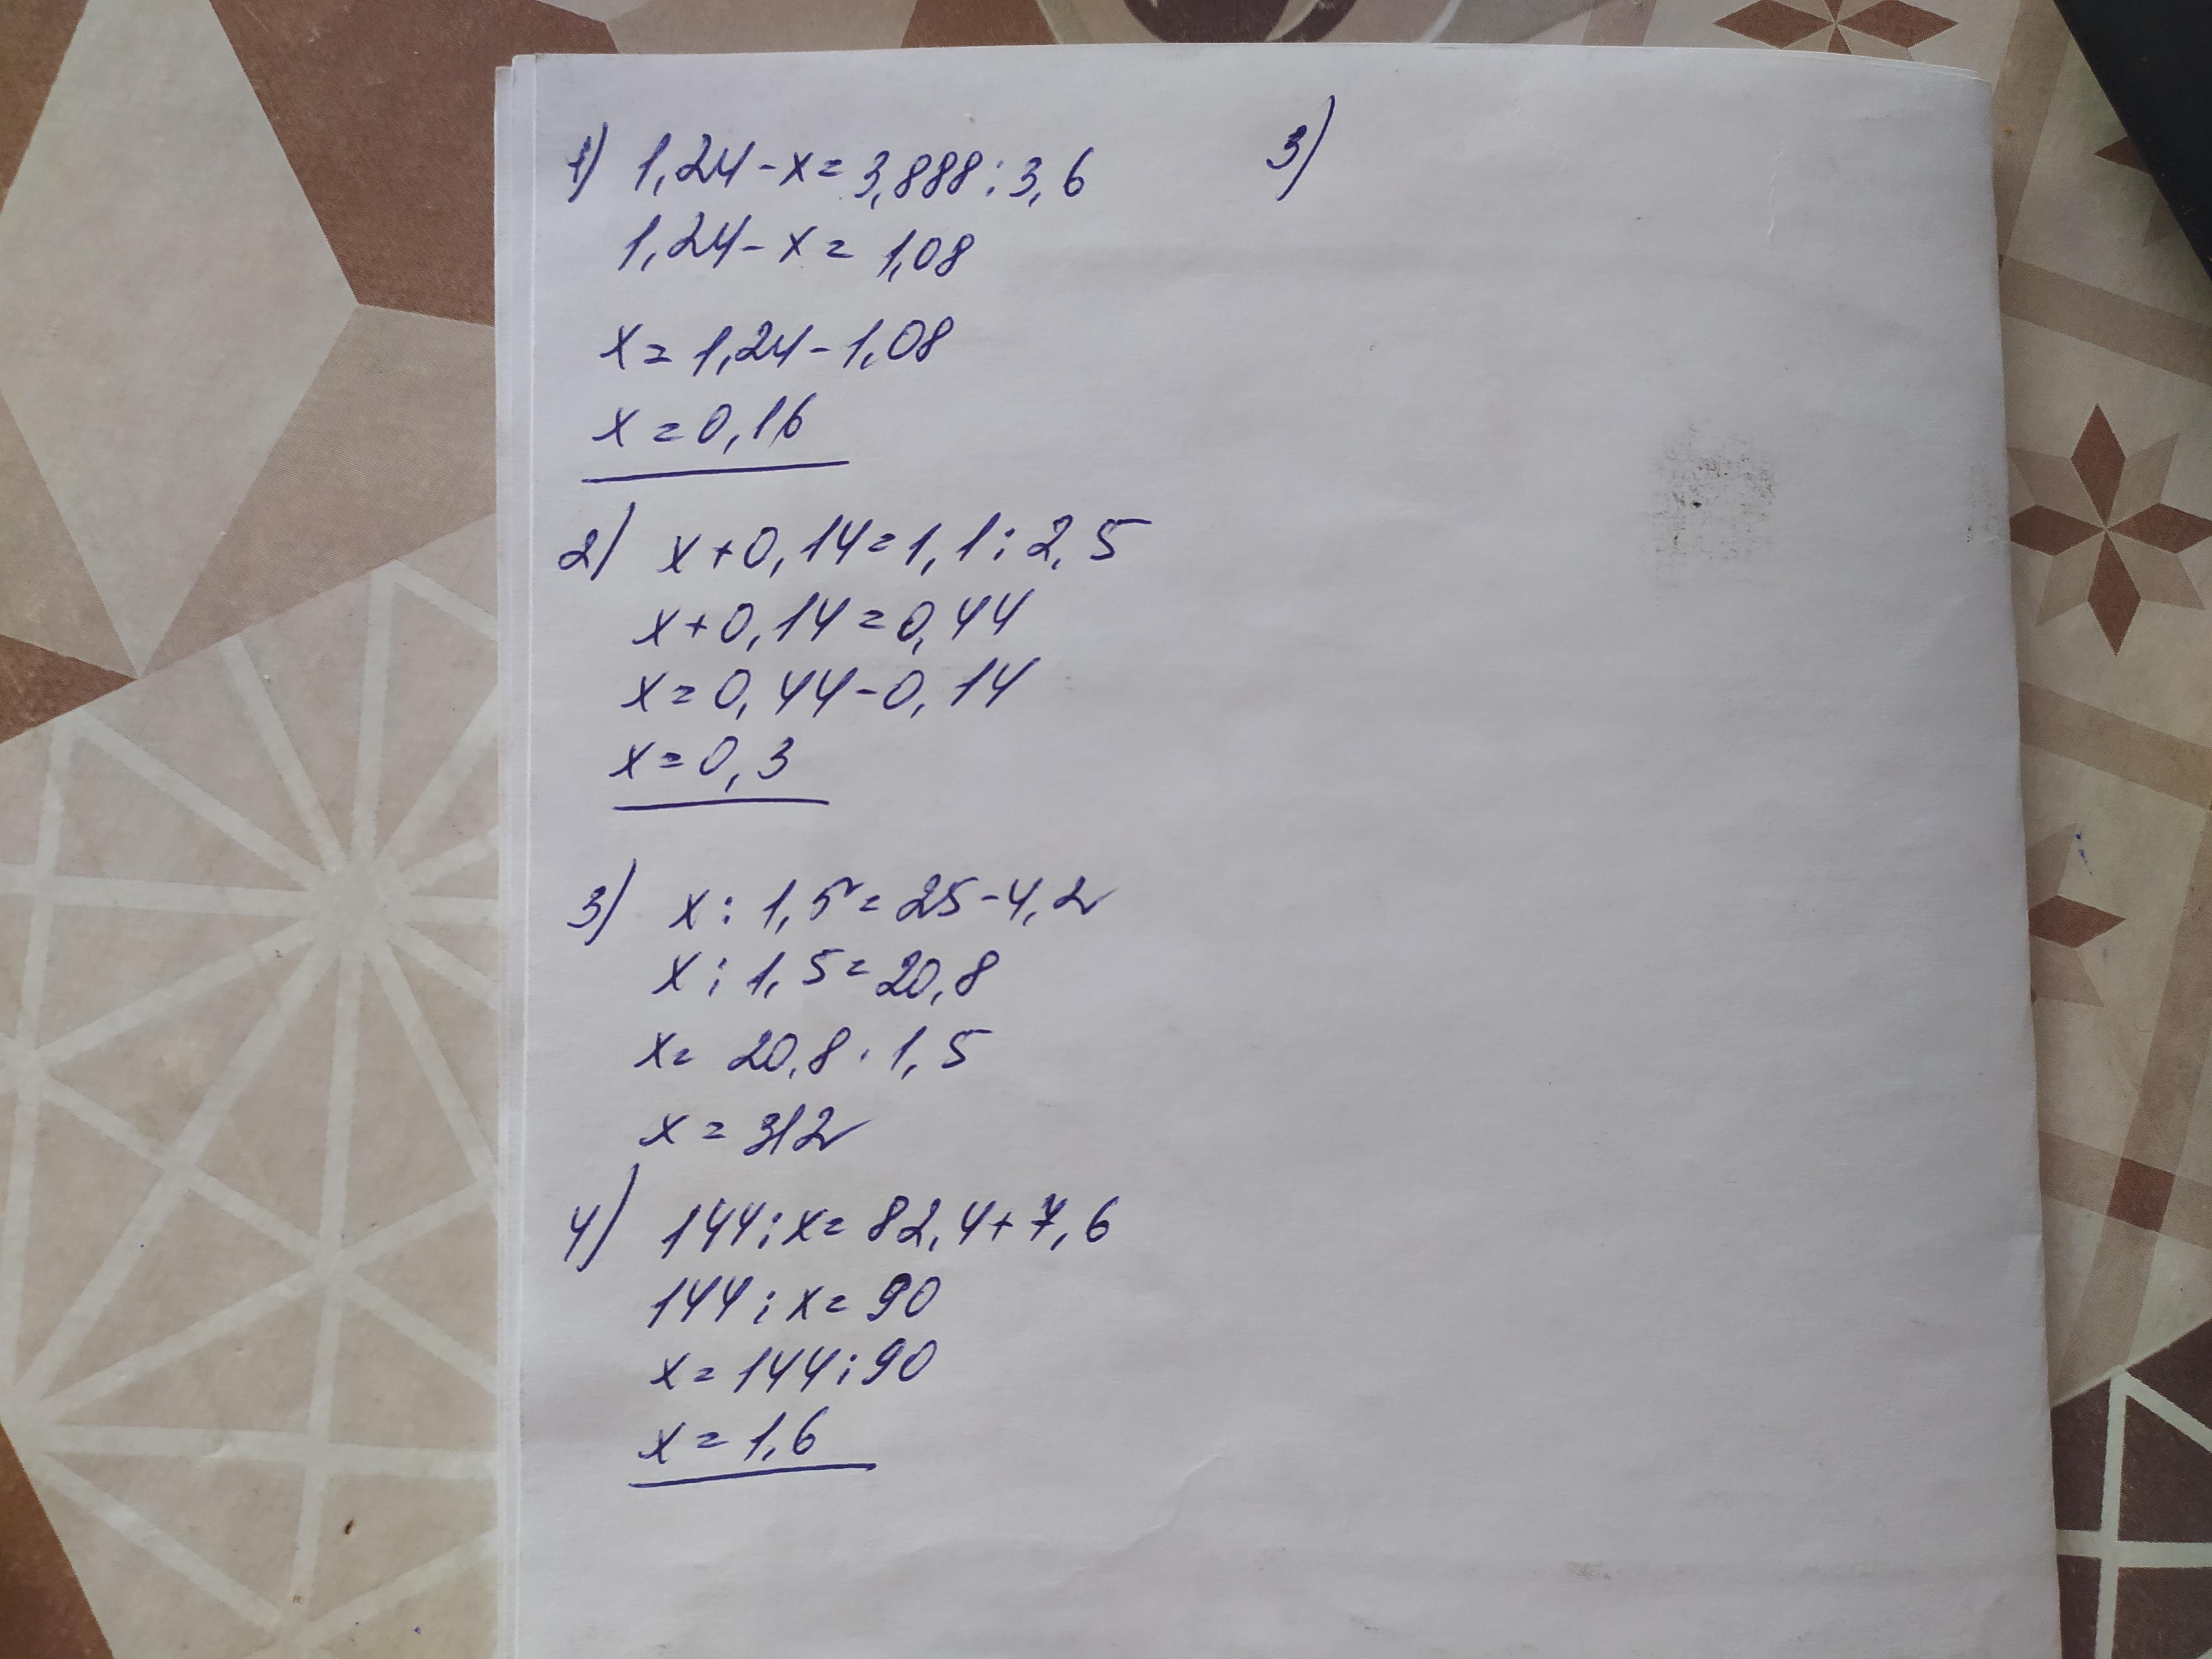 1) 1,24-x=3,888:3,6
1,24-x=1,08
x=1,24-1,08
x=0,16
2) x+0,14=1,1:2,5
x+0,14=0,44
x=0,44-0,14
x=0,3
3) x:1,5=25-4,2
x:1,5=20,8
x=20,8·1,5
x=312
4) 144:x=82,4+7,6
144:x=90
x=144:90
x=1,6
3)